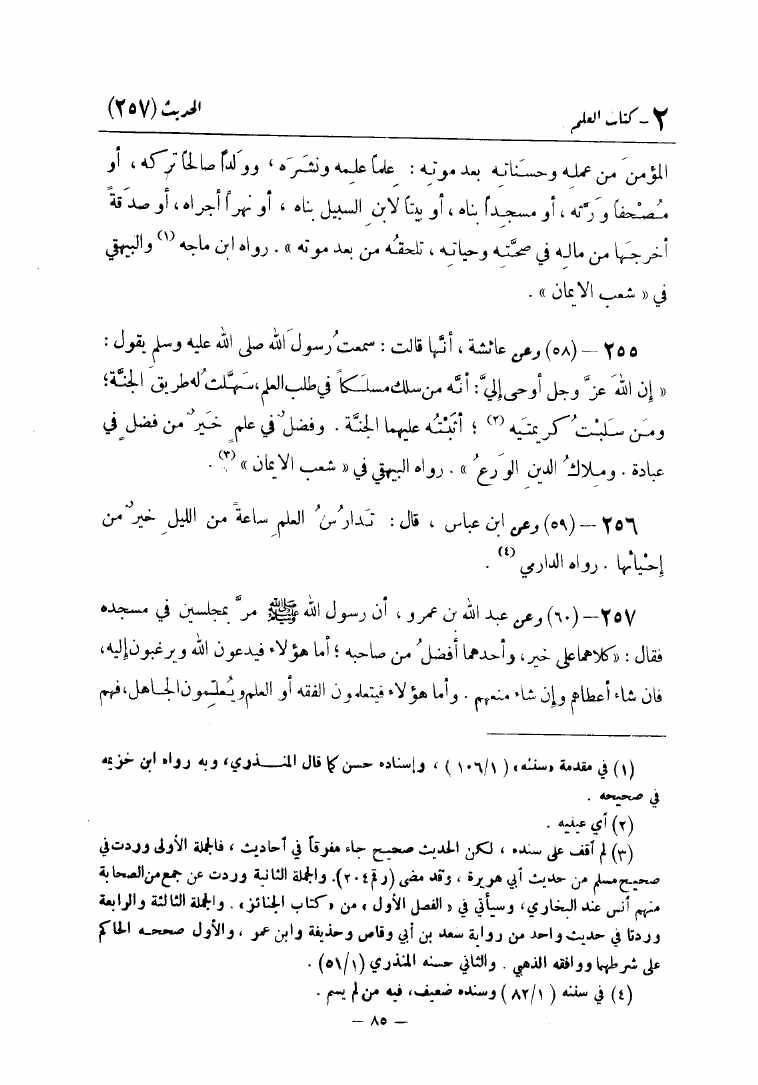 ٢ - كتاب العلم
الحديث (٢٥٧)
المؤمنَ من عملِه وحسناتِه بعد موتِه : علماً علِمه ونشرَه ، وولَداً صالحاً تركه ، أو
مُصْحفاً ورَّثه ، أو مسجداً بناه ، أو بيتاً لابنِ السبيل بناه ، أو نهراً أجراه ، أو صدَقةً
أخرجَها من مالِه في صحَّتِه وحياتِه ، تلحقُه من بعد موته » . رواه ابن ماجه (١) والبيهقي
في « شعب الايمان » .
٢٥٥ – (٥٨) وعن عائشة ، أنَّها قالت : سمعتُ رسولَ الله صلى الله عليه وسلم يقول :
« إن اللهَ عزَّ وجل أوحى إليَّ : أنَّه من سلك مسلكاً في طلب العلم ، سهَّلتُ له طريقَ الجنَّة ؛
ومَن سلَبْتُ كريمتَيه (٢) ؛ أثَبْتُه عليهما الجنَّة . وفضلٌ في علمٍ خيرٌ من فضلٍ في
عبادة . ومِلاكُ الدينِ الوَرعُ » . رواه البيهقي في « شعب الايمان » (٣) .
٢٥٦ – (٥٩) وعن ابن عباس ، قال : تَدارُسُ العلمِ ساعةً من الليلِ خيرٌ من
إحْيائها . رواه الدارمي (٤) .
٢٥٧ – (٦٠) وعن عبد الله بن عمرو ، أن رسول الله ﷺ مرَّ بمجلسين في مسجده
فقال : « كلاهما على خير ، وأحدهما أفضلُ من صاحبه ؛ أما هؤلاء فيدعون الله ويرغبون إليه ،
فان شاء أعطاهم وإن شاء منعهم . وأما هؤلاء فيتعلمون الفقه أو العلم ويُعلِّمون الجاهل ، فهم
(١) في مقدمة «سننه» ( ١٠٦/١ ) ، وإسناده حسن كما قال المنـــذري ، وبه رواه ابن خزيمه
في صحيحه .
(٢) أي عينيه .
(٣) لم أقف على سنده ، لكن الحديث صحيح جاء مفرقاً في أحاديث ، فالجملة الأولى وردت في
صحيح مسلم من حديث أبي هريرة ، وقد مضى (رقم ٢٠٤). والجملة الثانية وردت عن جمع من الصحابة
منهم أنس عند البخاري ، وسيأتي في « الفصل الأول » من «كتاب الجنائز» . والجملة الثالثة والرابعة
وردتا في حديث واحد من رواية سعد بن أبي وقاص وحذيفة وابن عمر ، والأول صححه الحاكم
على شرطهما ووافقه الذهبي . والثاني حسنه المنذري (٥١/١) .
(٤) في سننه ( ٨٢/١ ) وسنده ضعيف، فيه من لم يسم .
– ٨٥ –